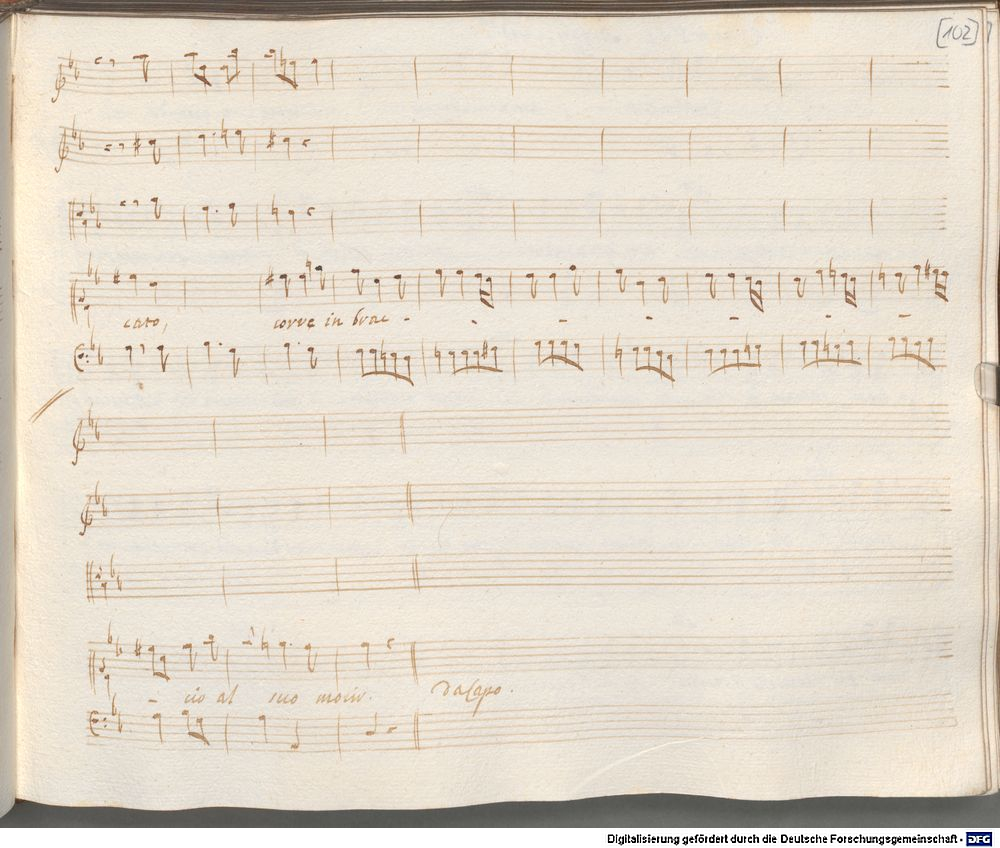 [102]
cato, corre in brac - - - - - - -
- cio al suo morir. Da Capo.
Digitalisierung gefördert durch die Deutsche Forschungsgemeinschaft - DFG